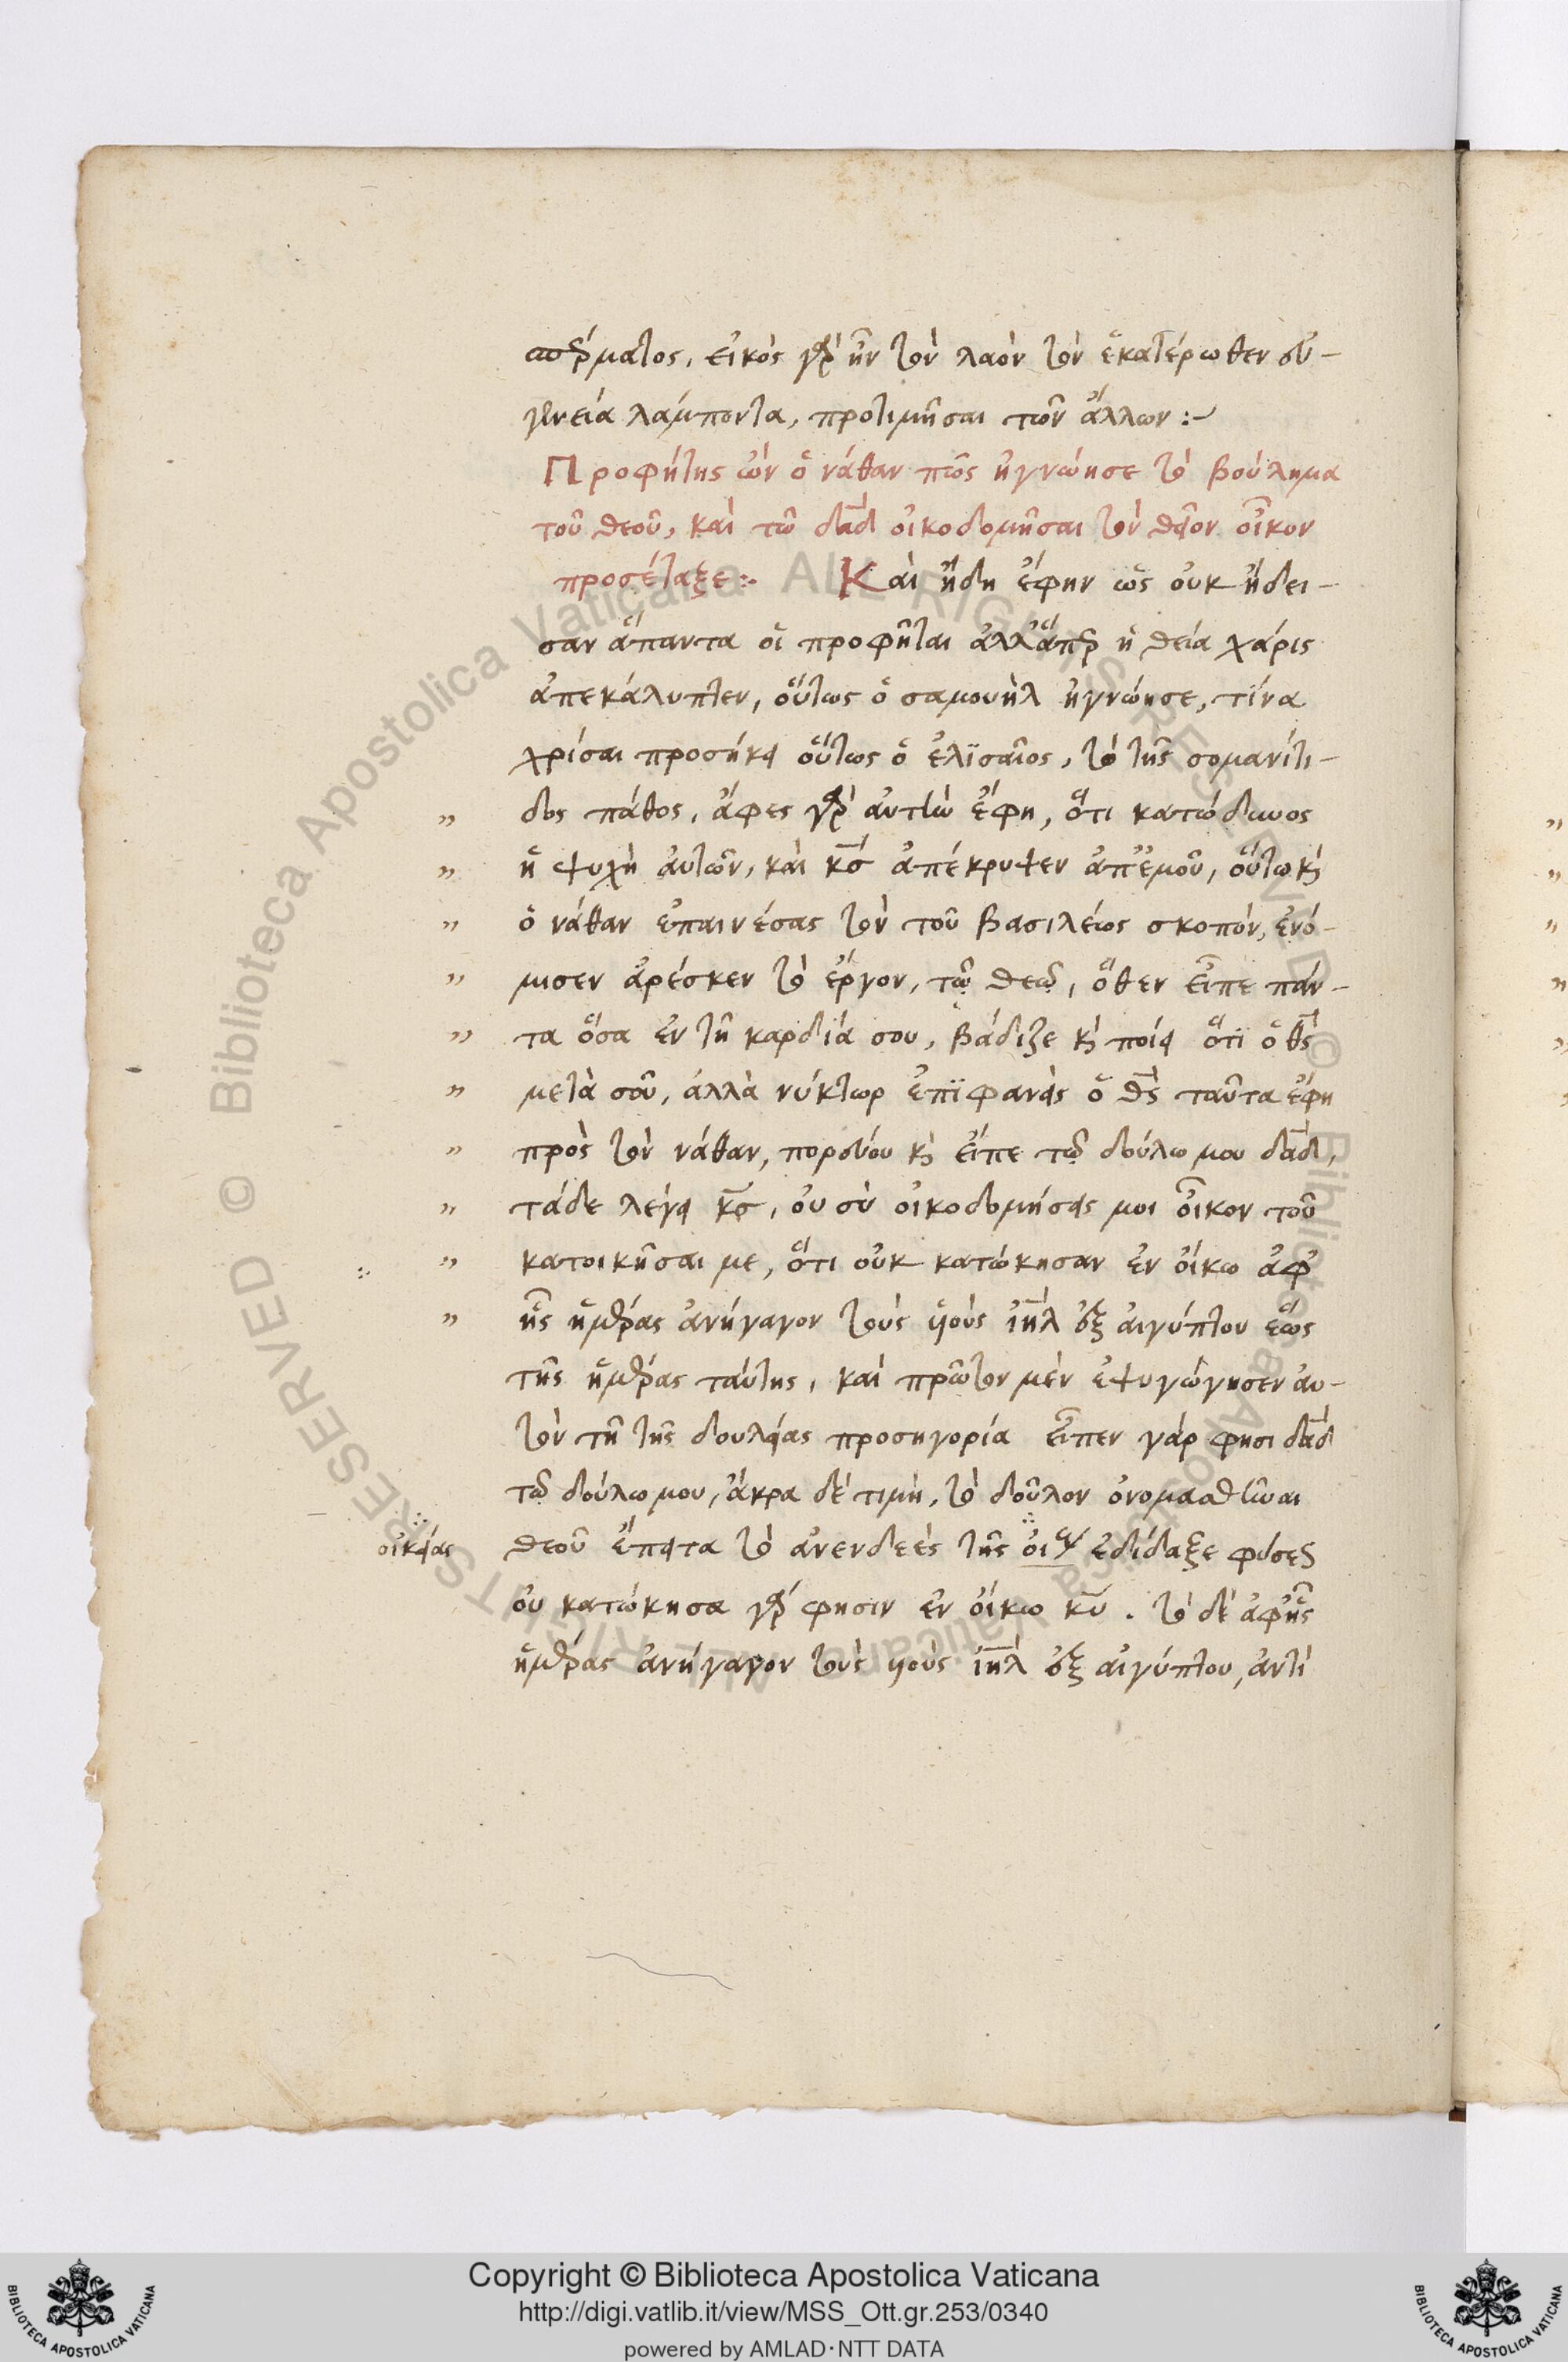 σπέρματος, εἰκὸς γὰρ ἦν τὸν λαὸν τὸν ἑκατέρωθεν εὐ-
γενεία λάμποντα, προτιμῆσαι τῶν ἄλλων :-
Προφήτης ὢν ὁ νάθαν πῶς ἠγνώησε τὸ βούλημα
τοῦ θεοῦ, καὶ τῶ δαδ οἰκοδομῆσαι τὸν θεῖον οἶκον
προσέταξε :. Καὶ ἤδη ἔφην ὡς οὐκ ἤδει-
σαν ἅπαντα οἱ προφῆται ἀλλ' ἅπερ ἡ θεία χάρις
ἀπεκάλυπτεν, οὕτως ὁ σαμουὴλ ἠγνώησε, τίνα
χρίσαι προσήκει οὕτως ὁ ἐλϊσαῖος, τὸ τῆς σομανίτι-
" δος πάθος, ἄφες γὰρ αὐτὴν ἔφη, ὅτι κατώδυνος
" ἡ ψυχὴ αὐτῶν, καὶ κς ἀπέκρυψεν ἀπ' ἐμοῦ, οὕτω καὶ
" ὁ νάθαν ἐπαινέσας τὸν τοῦ βασιλέως σκοπὸν, ἐνό-
" μισεν ἀρέσκειν τὸ ἔργον, τῷ θεῷ, ὅθεν εἶπε πάν-
" τα ὅσα ἐν τῆ καρδία σου, βάδιζε καὶ ποίει ὅτϊ ὁ θς
" μετὰ σοῦ, ἀλλὰ νύκτωρ ἐπϊφανεὶς ὁ θς ταῦτα ἔφη
" πρὸς τὸν νάθαν, πορεύου καὶ εἴπε τῷ δούλω μου δαδ,
" τάδε λέγει κς, οὐ σὺ οἰκοδομήσεις μοι οἶκον τοῦ
" κατοικῆσαι με, ὅτι οὐκ κατώκησαν ἐν οἴκω ἀφ'
" ἧς ἡμέρας ἀνήγαγον τοὺς υἱοὺς ιηλ ἐξ αἰγύπτου ἕως
τῆς ἡμέρας ταύτης, καὶ πρῶτον μὲν ἐψυγώγησεν αυ-
τὸν τῆ τῆς δουλείας προσηγορία εἶπεν γάρ φησι δαδ
τῷ δούλω μου, ἄκρα δὲ τιμὴ, τὸ δοῦλον ὀνομασθῆναι
οἰκείας θεοῦ ἔπειτα τὸ ἀνενδεὲς τῆς οἰ ἐδίδαξε φύσεως
οὐ κατώκησα γὰρ φησιν ἐν οἴκω κυ. τὸ δὲ ἀφ' ἧς
ἡμέρας ἀνήγαγον τοὺς υἱοὺς ιηλ ἐξ αἰγύπτου, ἀντὶ
Copyright © Biblioteca Apostolica Vaticana
http://digi.vatlib.it/view/MSS_Ott.gr.253/0340
powered by AMLAD·NTT DATA